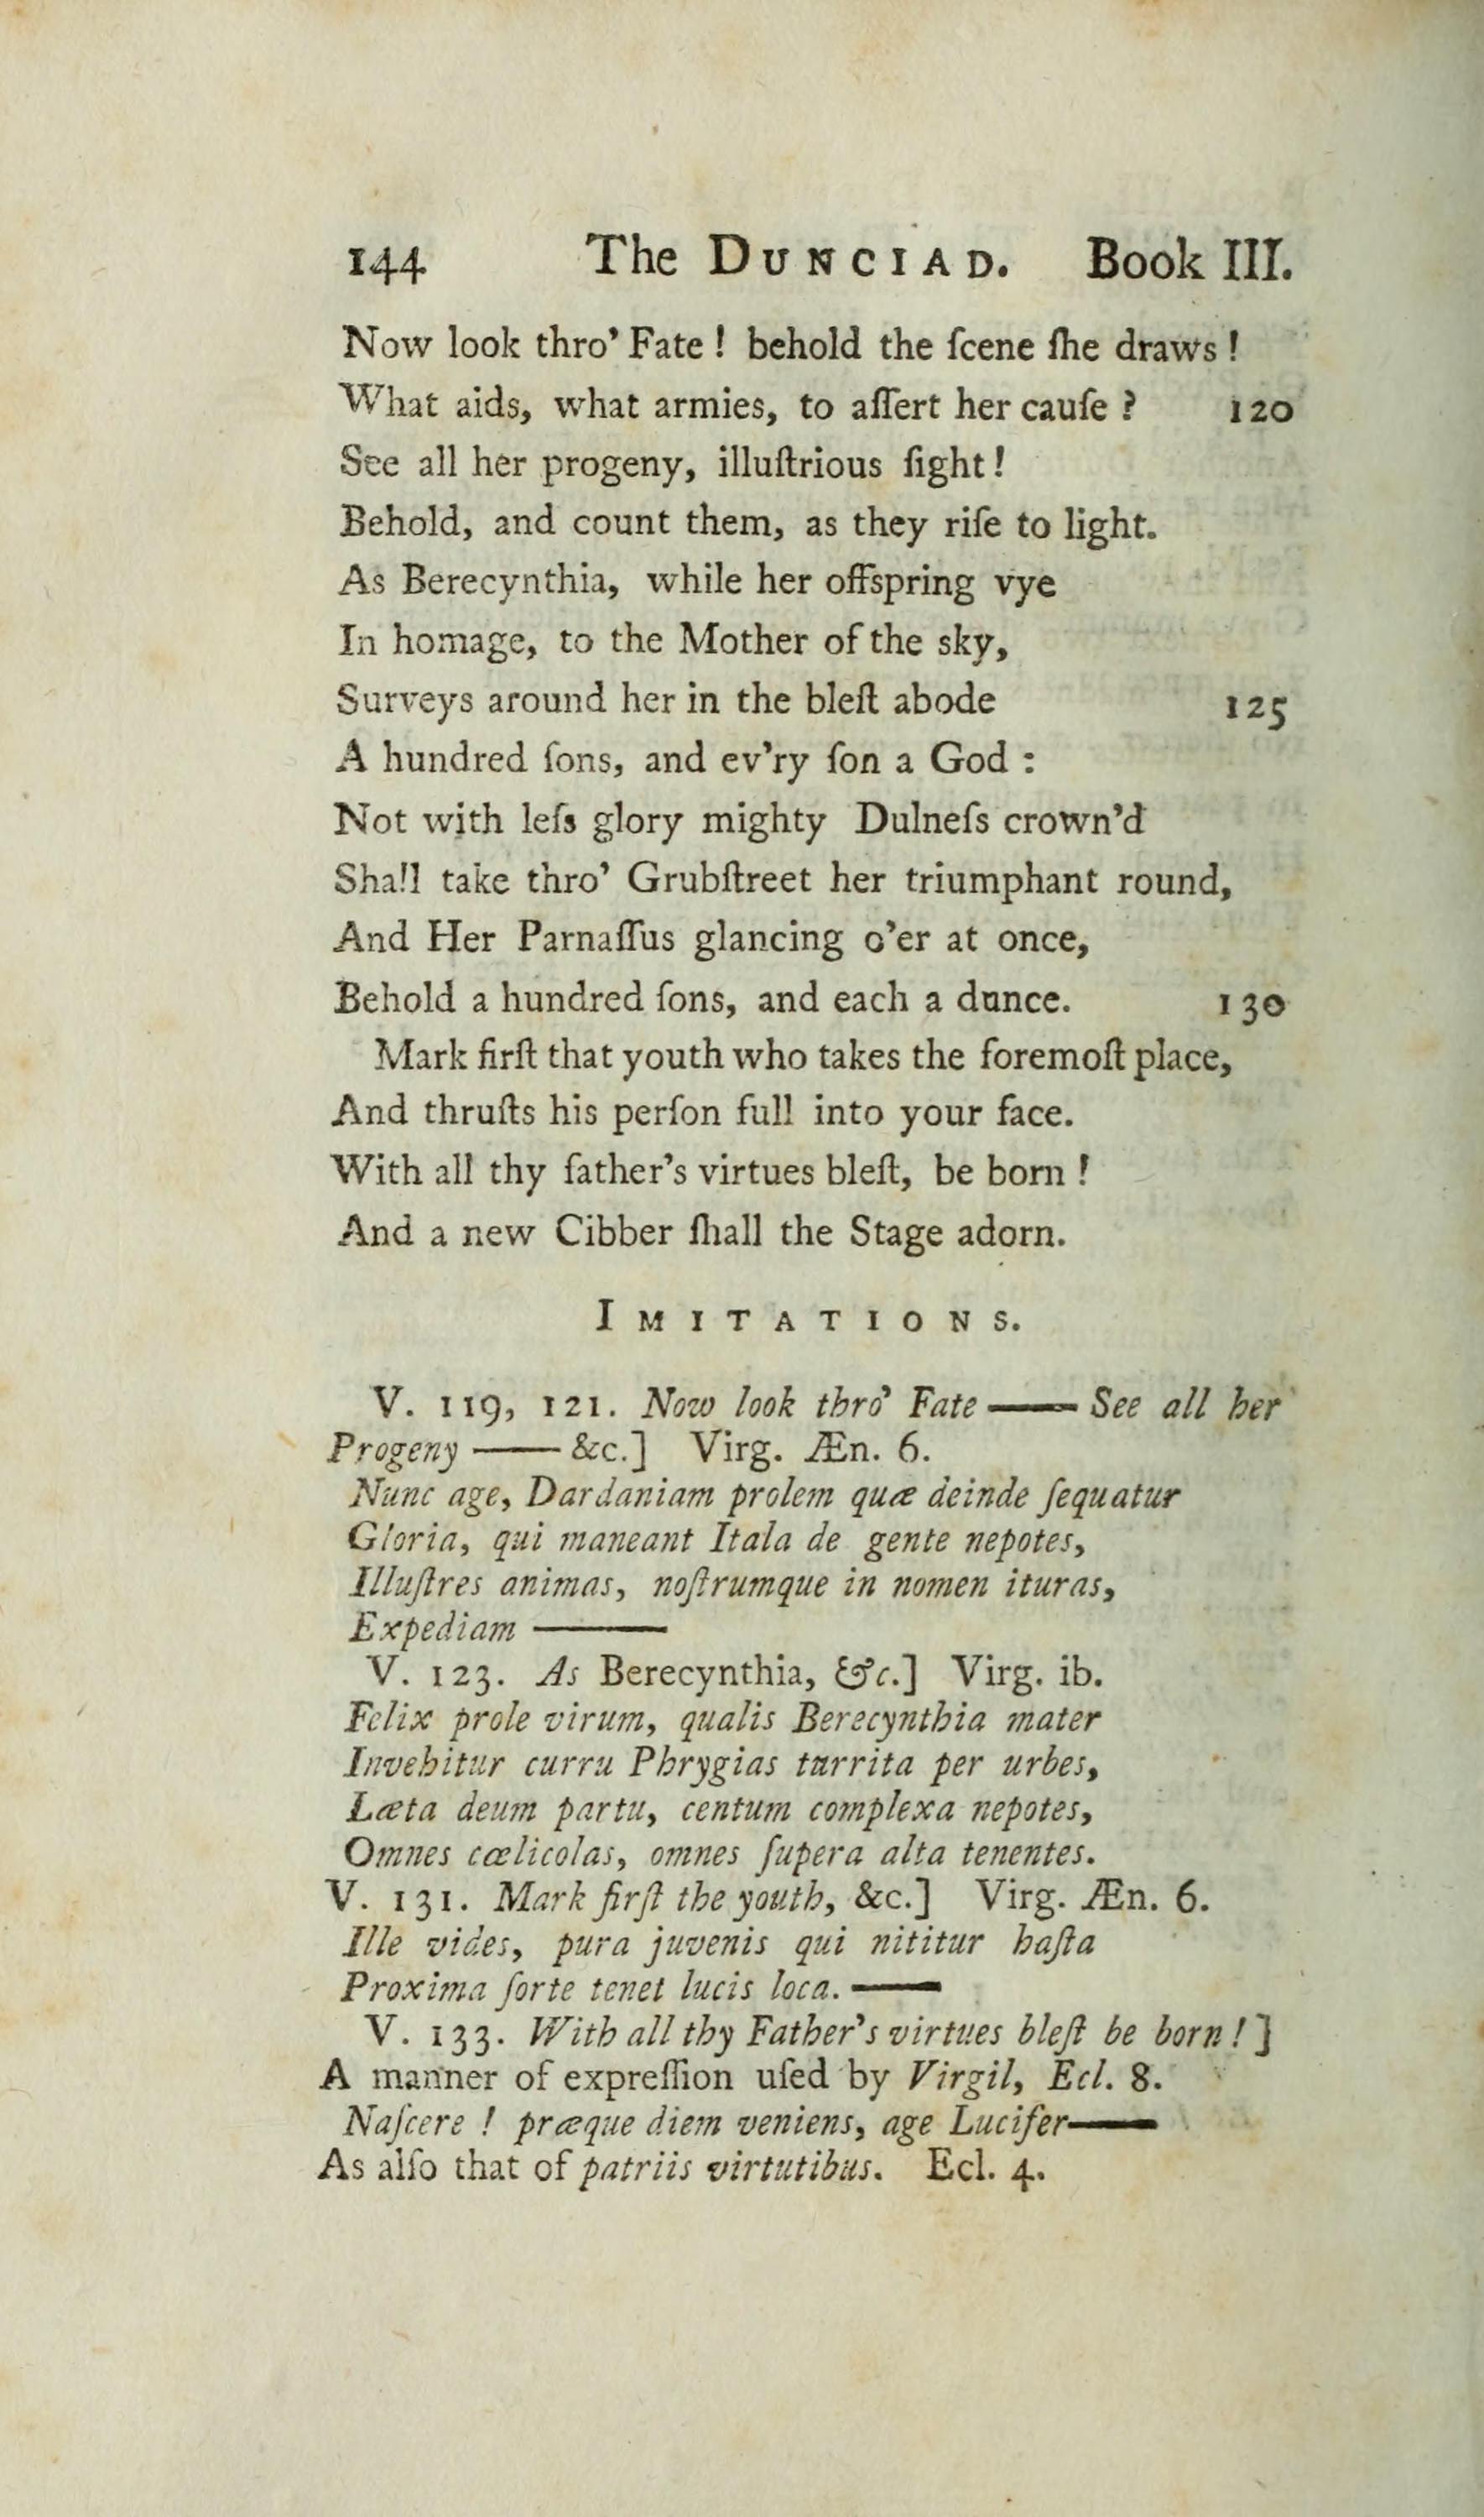 144 The DUNCIAD. Book III.
Now look thro' Fate ! behold the ſcene ſhe draws !
What aids, what armies, to aſſert her cauſe ? 120
See all her progeny, illuſtrious ſight !
Behold, and count them, as they riſe to light.
As Berecynthia, while her offspring vye
In homage, to the Mother of the sky,
Surveys around her in the bleſt abode 125
A hundred ſons, and ev'ry ſon a God :
Not with leſs glory mighty Dulneſs crown'd
Shall take thro' Grubſtreet her triumphant round,
And Her Parnaſſus glancing o'er at once,
Behold a hundred ſons, and each a dunce. 130
Mark firſt that youth who takes the foremoſt place,
And thruſts his perſon full into your face.
With all thy father's virtues bleſt, be born !
And a new Cibber ſhall the Stage adorn.
IMITATIONS.
V. 119, 121. Now look thro' Fate —— See all her
Progeny —— &c.] Virg. Æn. 6.
Nunc age, Dardaniam prolem quæ deinde ſequatur
Gloria, qui maneant Itala de gente nepotes,
Illuſtres animas, noſtrumque in nomen ituras,
Expediam ———
V. 123. As Berecynthia, &c.] Virg. ib.
Felix prole virum, qualis Berecynthia mater
Invehitur curru Phrygias turrita per urbes,
Læta deum partu, centum complexa nepotes,
Omnes cœlicolas, omnes ſupera alta tenentes.
V. 131. Mark firſt the youth, &c.] Virg. Æn. 6.
Ille vides, pura juvenis qui nititur haſta
Proxima ſorte tenet lucis loca. ——
V. 133. With all thy Father's virtues bleſt be born ! ]
A manner of expreſſion uſed by Virgil, Ecl. 8.
Naſcere ! præque diem veniens, age Lucifer——
As alſo that of patriis virtutibus. Ecl. 4.